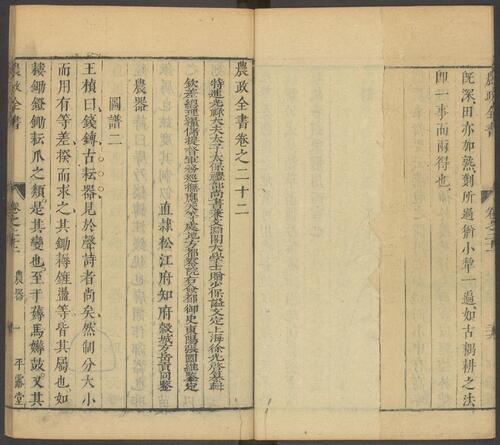 農政全書
既深田亦加熟剗所過猶小犁一遍如古耦耕之法
即一事而兩得也
農政全書卷之二十二
特進光祿大夫太子太保禮部尚書兼文淵閣大學士贈少保謚文定上海徐光啓纂輯
欽差總理糧儲提督軍務巡撫應天等處地方都察院右僉都御史東陽張國維鑒定
直隸松江府知府穀城方岳貢同鑒
農器
圖譜二
王禎曰錢鎛古耘器見於聲詩者尚矣然制分大小
而用有等差揆而求之其鋤耨鏟盪等皆其屬也如
耬鋤鐙鋤耘爪之類是其變也至于薅馬薅鼓又其
農政全書 卷之二十二 農器 一 平露堂